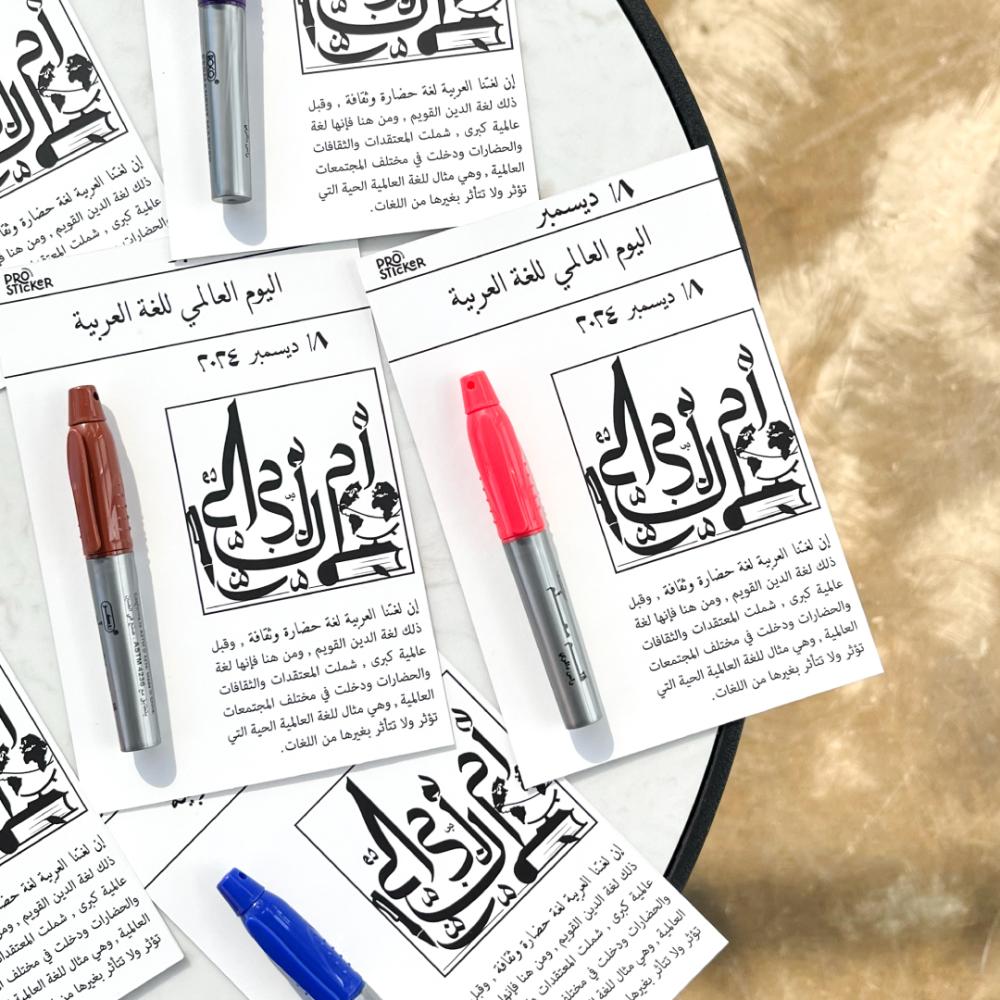 إن لغتنا العربية لغة حضارة وثقافة , وقبل
ذلك لغة الدين القويم , ومن هنا فإنها لغة
عالمية كبرى , شملت المعتقدات والثقافات
والحضارات ودخلت في مختلف المجتمعات
العالمية , وهي مثال للغة العالمية الحية التي
تؤثر ولا تتأثر بغيرها من اللغات.
إن لغتنا العربية لغة حضارة وثقا
ذلك لغة الدين القويم , ومن هنا فإ
عالمية كبرى , شملت المعتقدا
والحضارات
١٨ ديسمبر
PRO STICKER
اليوم العالمي للغة العربية
١٨ ديسمبر ٢٠٢٤
إن لغتنا العربية لغة حضارة وثقافة , وقبل
ذلك لغة الدين القويم , ومن هنا فإنها لغة
عالمية كبرى , شملت المعتقدات والثقافات
والحضارات ودخلت في مختلف المجتمعات
العالمية , وهي مثال للغة العالمية الحية التي
تؤثر ولا تتأثر بغيرها من اللغات.
PRO STICKER
اليوم العالمي للغة العربية
١٨ ديسمبر ٢٠٢٤
ASTM 4236
إن لغتنا العربية لغة حضارة وثقافة , وقبل
ذلك لغة الدين القويم , ومن هنا فإنها لغة
عالمية كبرى , شملت المعتقدات والثقافات
والحضارات ودخلت في مختلف المجتمعات
العالمية , وهي مثال للغة العالمية الحية التي
تؤثر ولا تتأثر بغيرها من اللغات.
إن لغتنا العربية لغة حضارة وثقافة , وقبل
ذلك لغة الدين القويم , ومن هنا فإنها لغة
عالمية كبرى , شملت المعتقدات
والحضارات ودخلت في مختلف
العالمية , وهي مثال للغة
تؤثر ولا تتأثر بغيرها
إن لغتنا العربية
ذلك لغة الدين القويم
عالمية كبرى , شملت
والحضارات ودخلت في
العالمية , وهي مثال للغة العا
تؤثر ولا تتأثر بغيرها من اللغات.